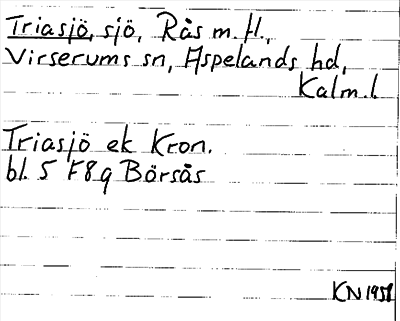 Triasjö, sjö, Rås m.fl.,
Virserums sn, Aspelands hd,
Kalm.l.
Triasjö ek Kron.
bl. 5 F8g Börsås
KN 1951